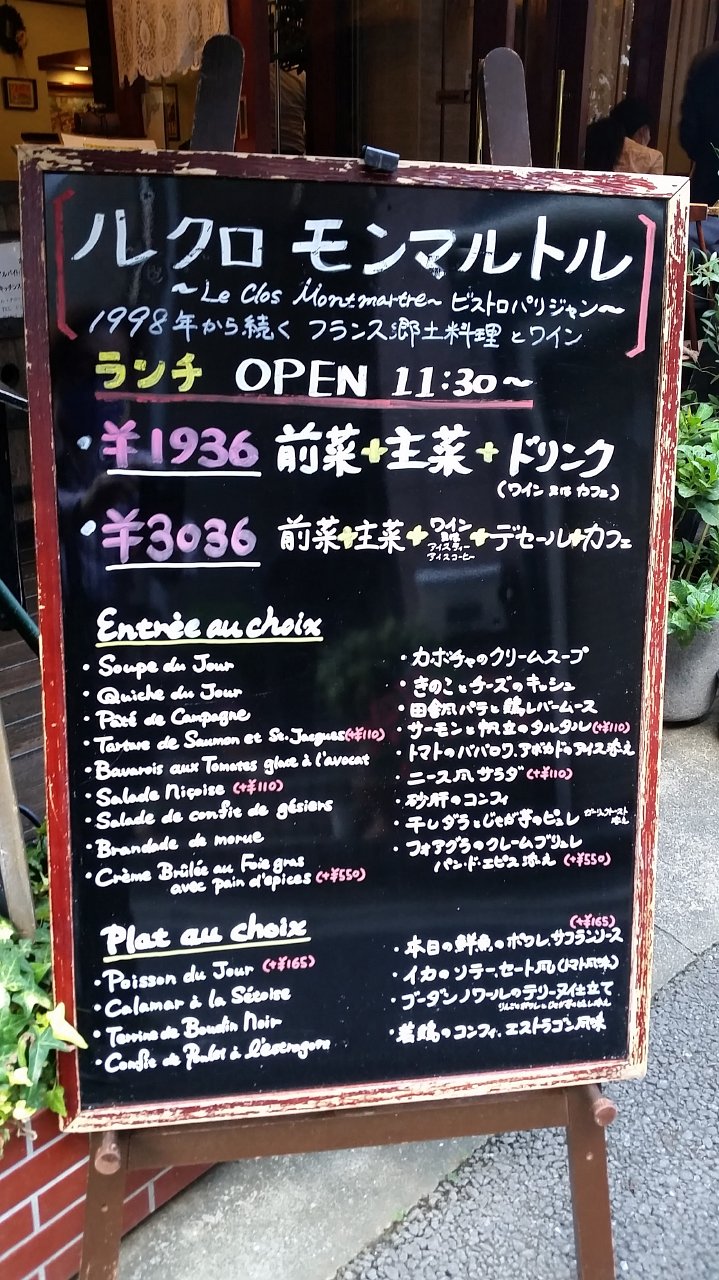 ル クロ モンマルトル
~Le Clos Montmartre~ ビストロパリジャン~
1998年から続く フランス郷土料理とワイン
ランチ OPEN 11:30~
・¥1936 前菜+主菜+ドリンク
(ワイン又は カフェ)
・¥3036 前菜+主菜+ワイン又はアイスティーアイスコーヒー+デセール+カフェ
Entrée au choix
・Soupe du Jour
・Quiche du Jour
・Pâté de Campagne
・Tartare de Saumon et St-Jacques(+¥110)
・Bavarois aux Tomates glace à l'avocat
・Salade Niçoise (+¥110)
・Salade de confit de gésiers
・Brandade de morue
・Crème Brûlée au Foie gras
avec pain d'épices (+¥550)
・カボチャのクリームスープ
・きのことチーズのキッシュ
・田舎風パテと鶏レバームース
・サーモンと帆立のタルタル(+¥110)
・トマトのババロワ、アボカドのアイス添え
・ニース風サラダ(+¥110)
・砂肝のコンフィ
・干しダラとじゃが芋のピュレ ガーリックトースト添え
・フォアグラのクレームブリュレ
パン・ド・エピス添え (+¥550)
Plat au choix
・Poisson du Jour (+¥165)
・Calamar à la Sétoise
・Terrine de Boudin Noir
・Confit de Poulet à l'estragon
(+¥165)
・本日の鮮魚のポワレ、サフランソース
・イカのソテー、セート風(トマト風味)
・ブーダンノワールのテリーヌ仕立て
・若鶏のコンフィ、エストラゴン風味